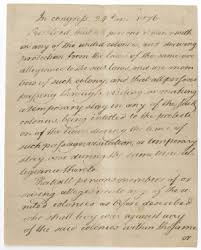 In congress, 24 June 1776
Resolved, that all persons residing with
in any of the united colonies, and deriving
protection from the laws of the same owe
allegiance to the said laws, and are mem
bers of such colony; and that all persons
passing through, visiting, or making
a temporary stay in any of the said
colonies, being entitled to the protection
of the laws during the time of
such passage, visitation, or temporary
stay, owe during the same time, al
legiance thereto.
That all persons members of, or
owing allegiance to any of the u
nited colonies as before described
who shall levy war against any
of the said colonies within the same
or